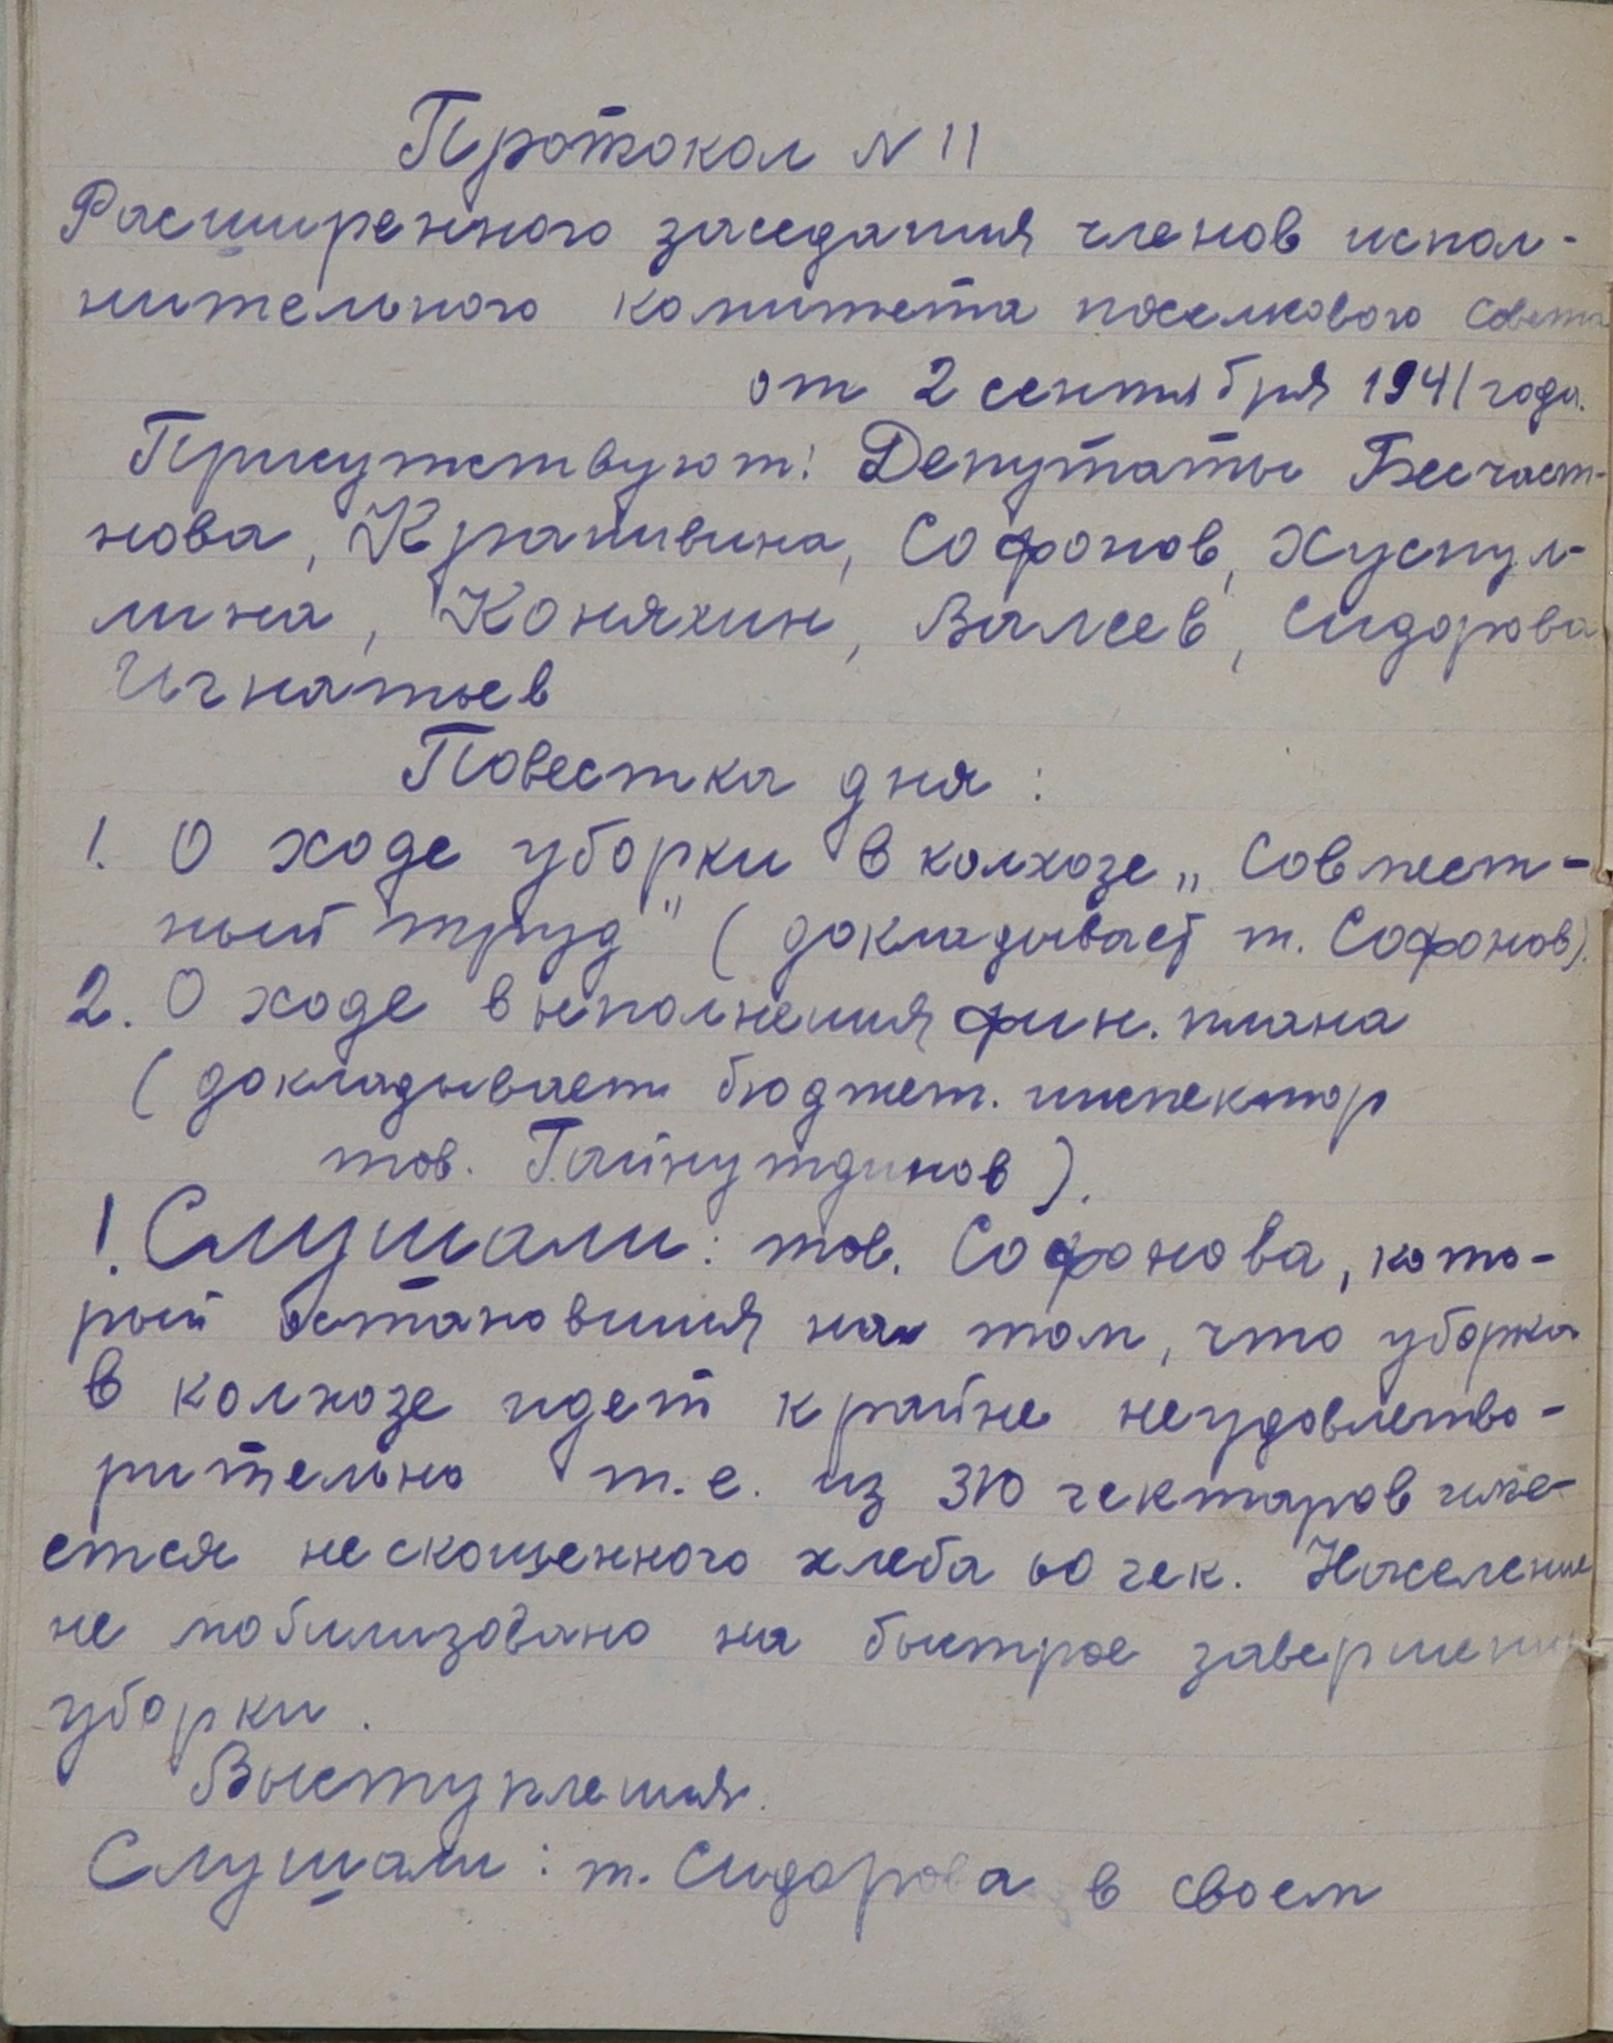 Протокол N 11
Расширенного заседания членов испол-
нительного комитета поселкового Совета
от 2 сентября 1941 года.
Присутствуют: Депутаты Бесчаст-
нова, Крапивина, Софонов, Хуснул-
лина, Коняхин, Валеев, Сидорова
Игнатьев
Повестка дня:
1. О ходе уборки в колхозе „Совмест-
ный труд" (докладывает т. Софонов).
2. О ходе выполнения фин. плана
(докладывает бюджет. инспектор
тов. Гайнутдинов).
1. Слушали: тов. Софонова, кото-
рый остановился на том, что уборка
в колхозе идет крайне неудовлетво-
рительно т.е. из 310 гектаров име-
ется нескошенного хлеба 60 гек. Население
не мобилизовано на быстрое завершение
уборки.
Выступления.
Слушали: т. Сидорова в своем